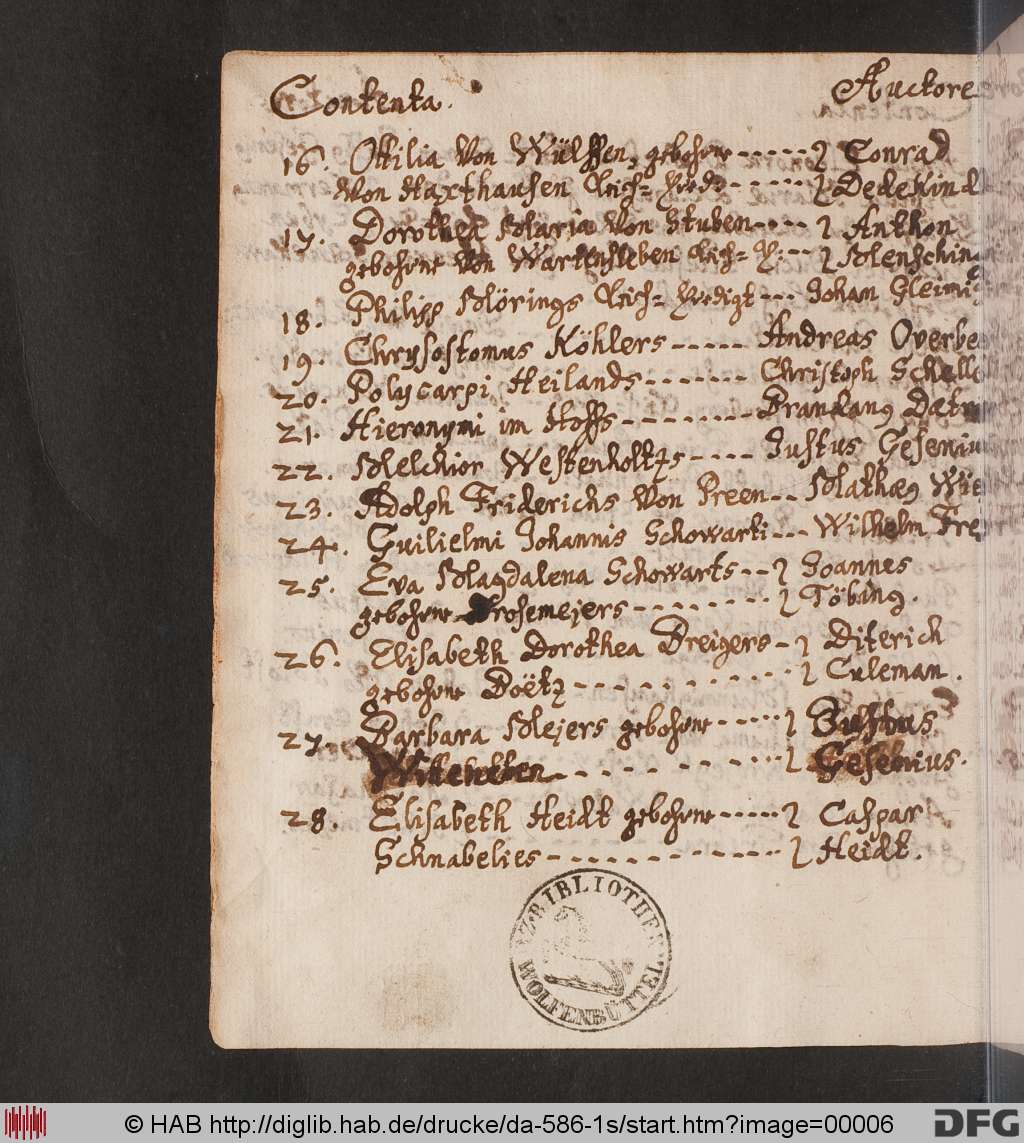 Contenta. Auctore
16. Ottilia Von Wülffen, gebohrne ----- Conrad
Von Haxthausen Leich= Pred: ----- Dedekind
17. Dorothea Maria Von Stuben ---- Anthon
gebohrne Von Wartensleben Leich= P: -- Menschin
18. Philipp Mörings Leich= Predigt --- Johan Gleimi
19. Chrysostomus Köhlers ----- Andreas Overbe
20. Polycarpi Heilands ------- Christoph Schell
21. Hieronymi im Hoffs -------- Brandang Dætr
22. Melchior Westenholtzs ---- Justus Geseniu
23. Adolph Friderichs Von Preen -- Mathæg Wie
24. Guilielmi Johannis Schowarti --- Wilhelm Fre
25. Eva Magdalena Schowarts -- Joannes
gebohrne Brosemejers -------- Töbing.
26. Elisabeth Dorothea Dreigers - Diterich
gebohrne Doëtz --------- Culeman.
27. Barbara Mejers gebohrne ----- Justus
--------- Gesenius.
28. Elisabeth Heidt gebohrne ----- Caspar
Schnabelies ------------ Heidt.
BIBLIOTHEK
WOLFENBÜTTEL
© HAB http://diglib.hab.de/drucke/da-586-1s/start.htm?image=00006
DFG